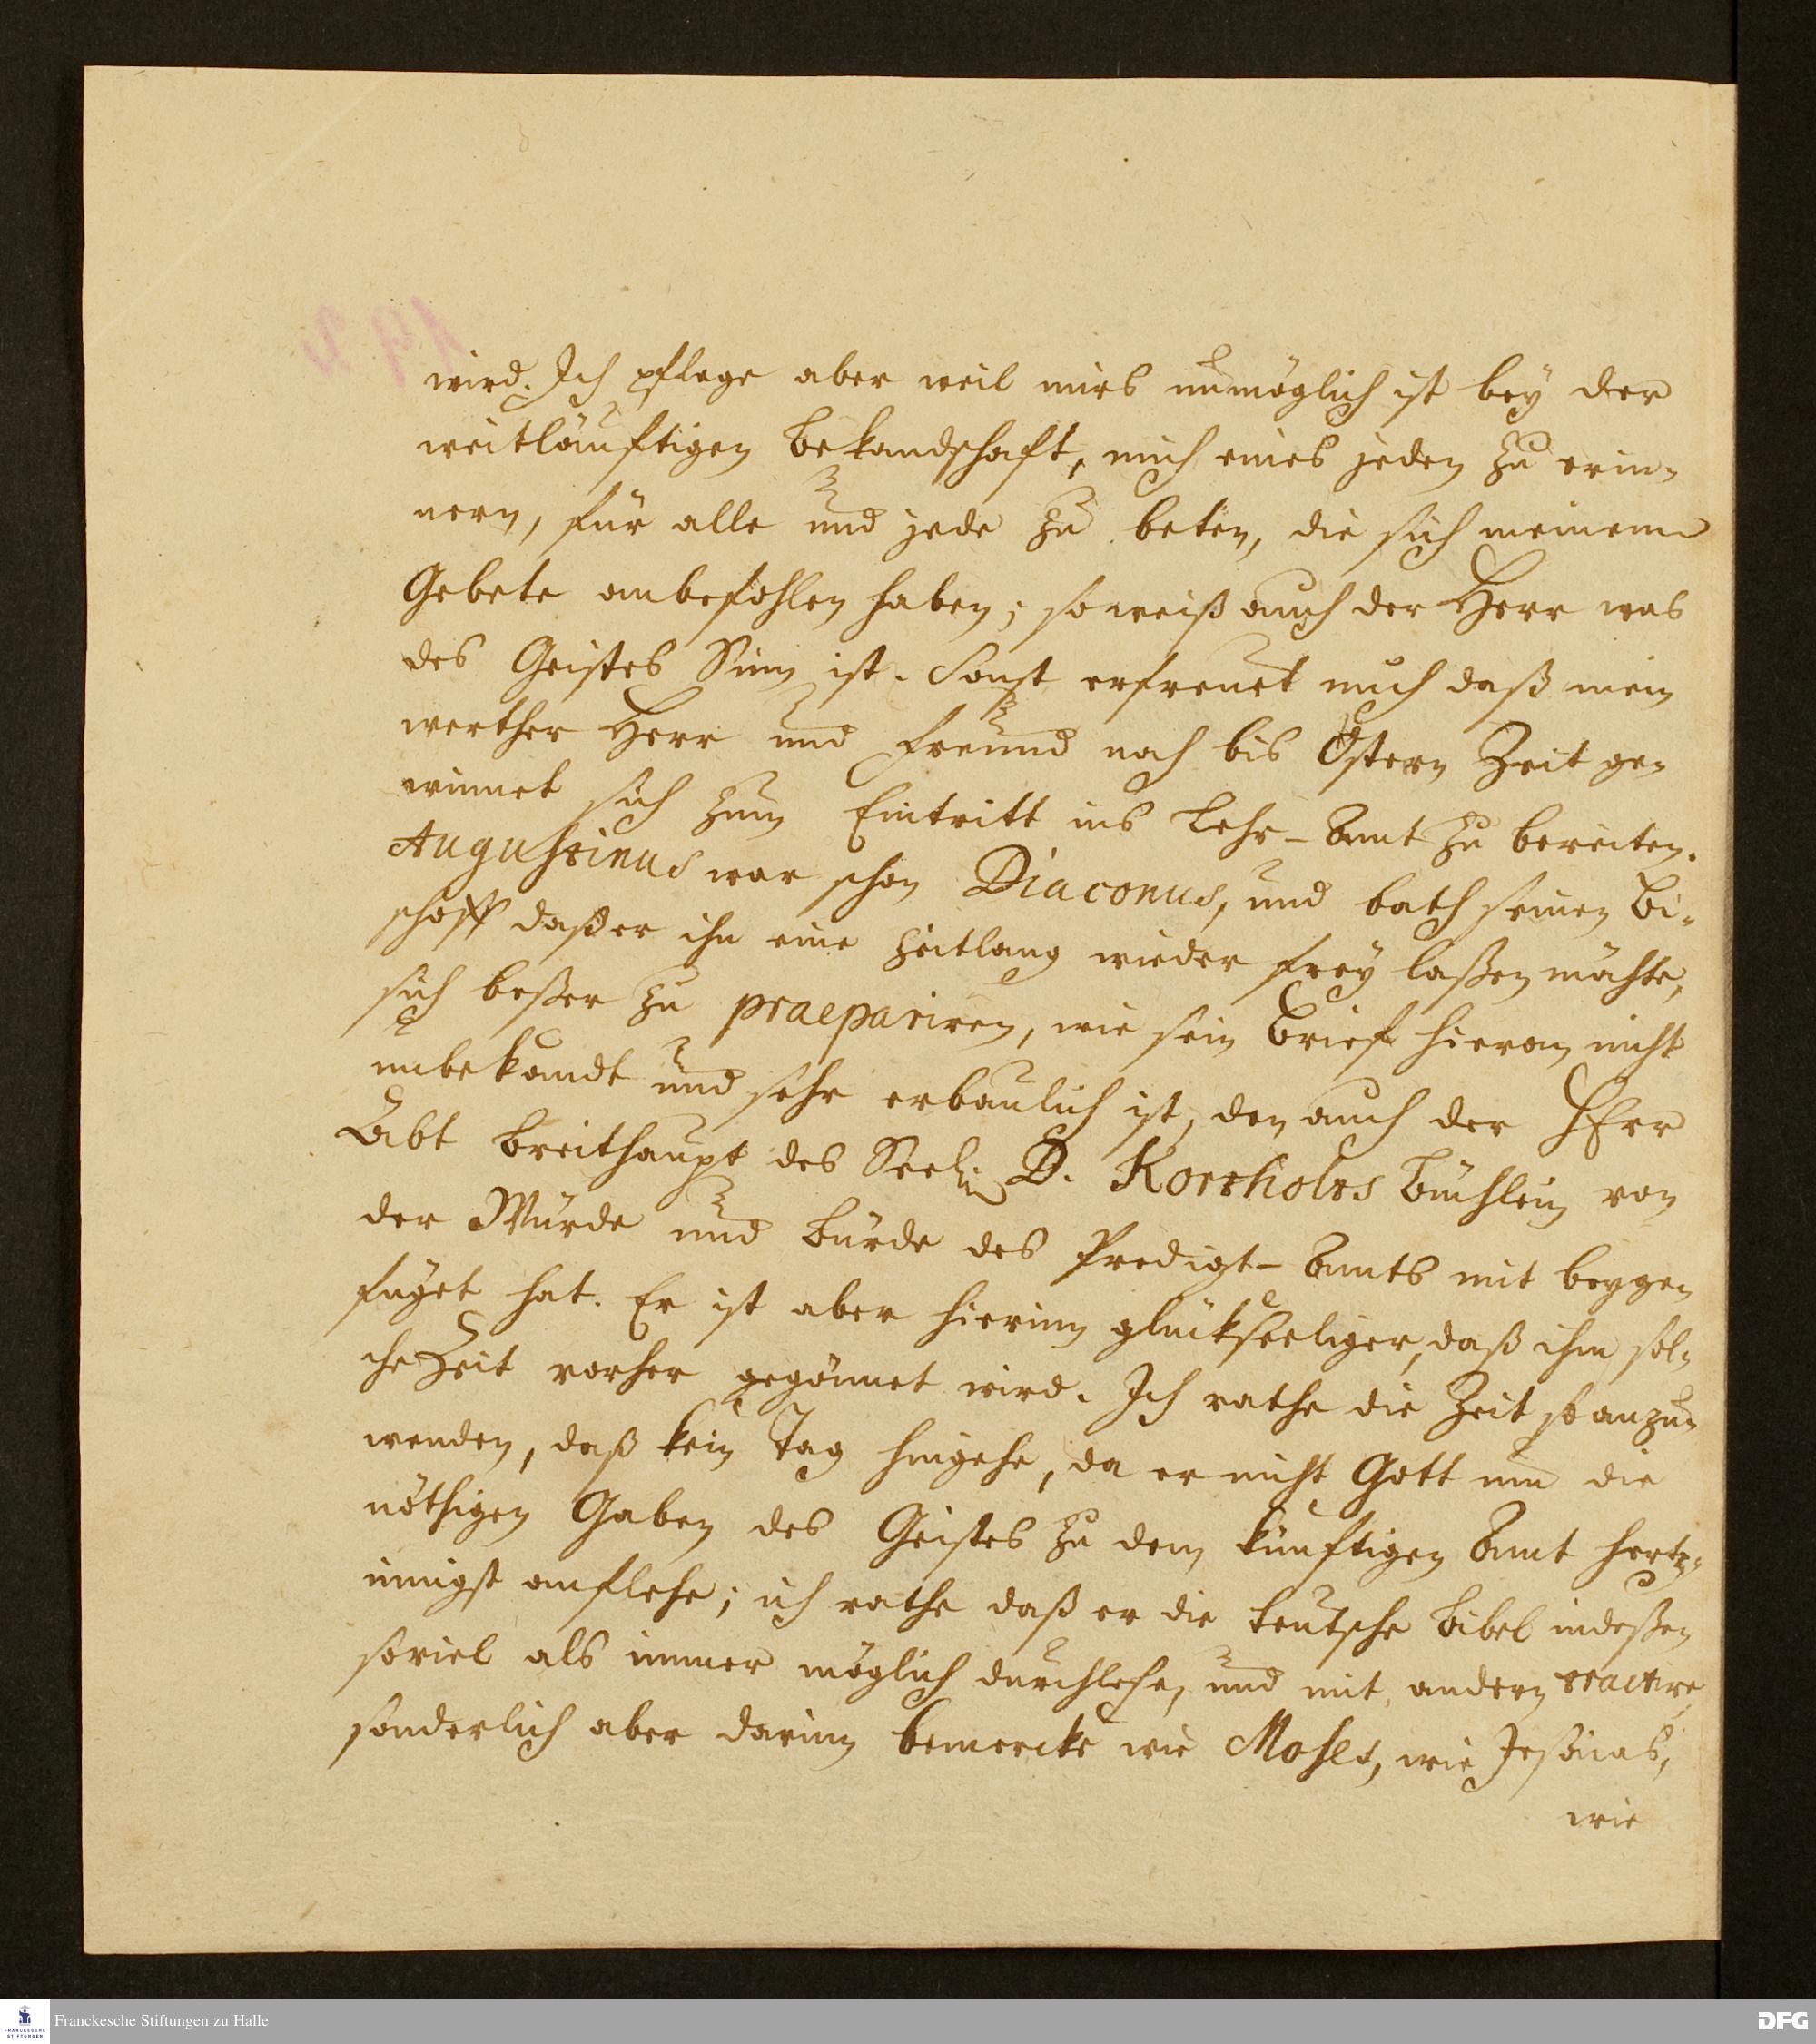 wird. Ich pflege aber weil mirs unmöglich ist bey der
weitläuftigen Bekandschaft, mich eines jeden zu erin-
nern, für alle und jede zu beten, die sich meinem
Gebete anbefohlen haben; so weiß auch der Herr was
des Geistes Sinn ist. Sonst erfreuet mich daß mein
werther Herr und Freund noch bis Ostern Zeit ge-
winnet sich zum Eintritt ins Lehr-Amt zu bereiten.
Augustinus war schon Diaconus, und bath seinen Bi-
schoff daß er ihn eine Zeitlang wieder frey laßen möchte,
sich beßer zu praepariren, wie sein Brief hievon nicht
unbekandt und sehr erbaulich ist, den auch der HErr
Abt Breithaupt des Seel. D. Kortholts Büchlein von
der Würde und Bürde des Predigt-Amts mit beyge-
füget hat. Er ist aber hierinn glückseeliger, daß ihm sol-
che Zeit vorher gegönnet wird. Ich rathe die Zeit so anzu-
wenden, daß kein Tag hingehe, da er nicht Gott um die
nöthigen Gaben des Geistes zu dem künftigen Amt hertz-
innigst anflehe; ich rathe daß er die teutsche Bibel indeßen
soviel als immer möglich durchlese, und mit andern tractire
sonderlich aber darinn bemercke wie Moses, wie Jesaias,
wie
Franckesche Stiftungen zu Halle
DFG